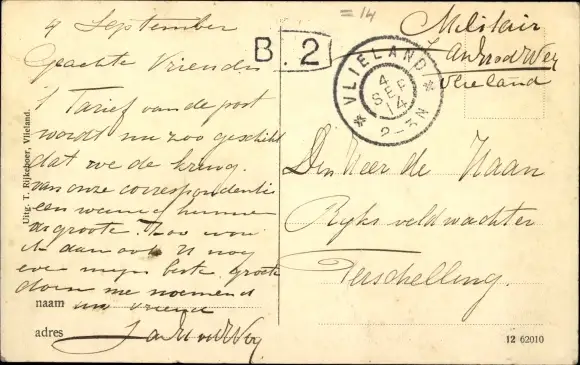 4 September
Geachte Vrienden
't Tarief van de post
wordt nu zoo geschikt
dat we de kring
van onze correspondentie
een weinig kunnen
Zoo
ik dan ook U nog
even mijn beste groete
doen me noemend
naam uw vriend
adres
Uitg. T. Rijkeboer, Vlieland.
= 14
B. 2
VLIELAND
4
SEP
14
2-3N
Militair
Vlieland
Den Heer de Haan
Rijksveldwachter
Terschelling.
12 62010